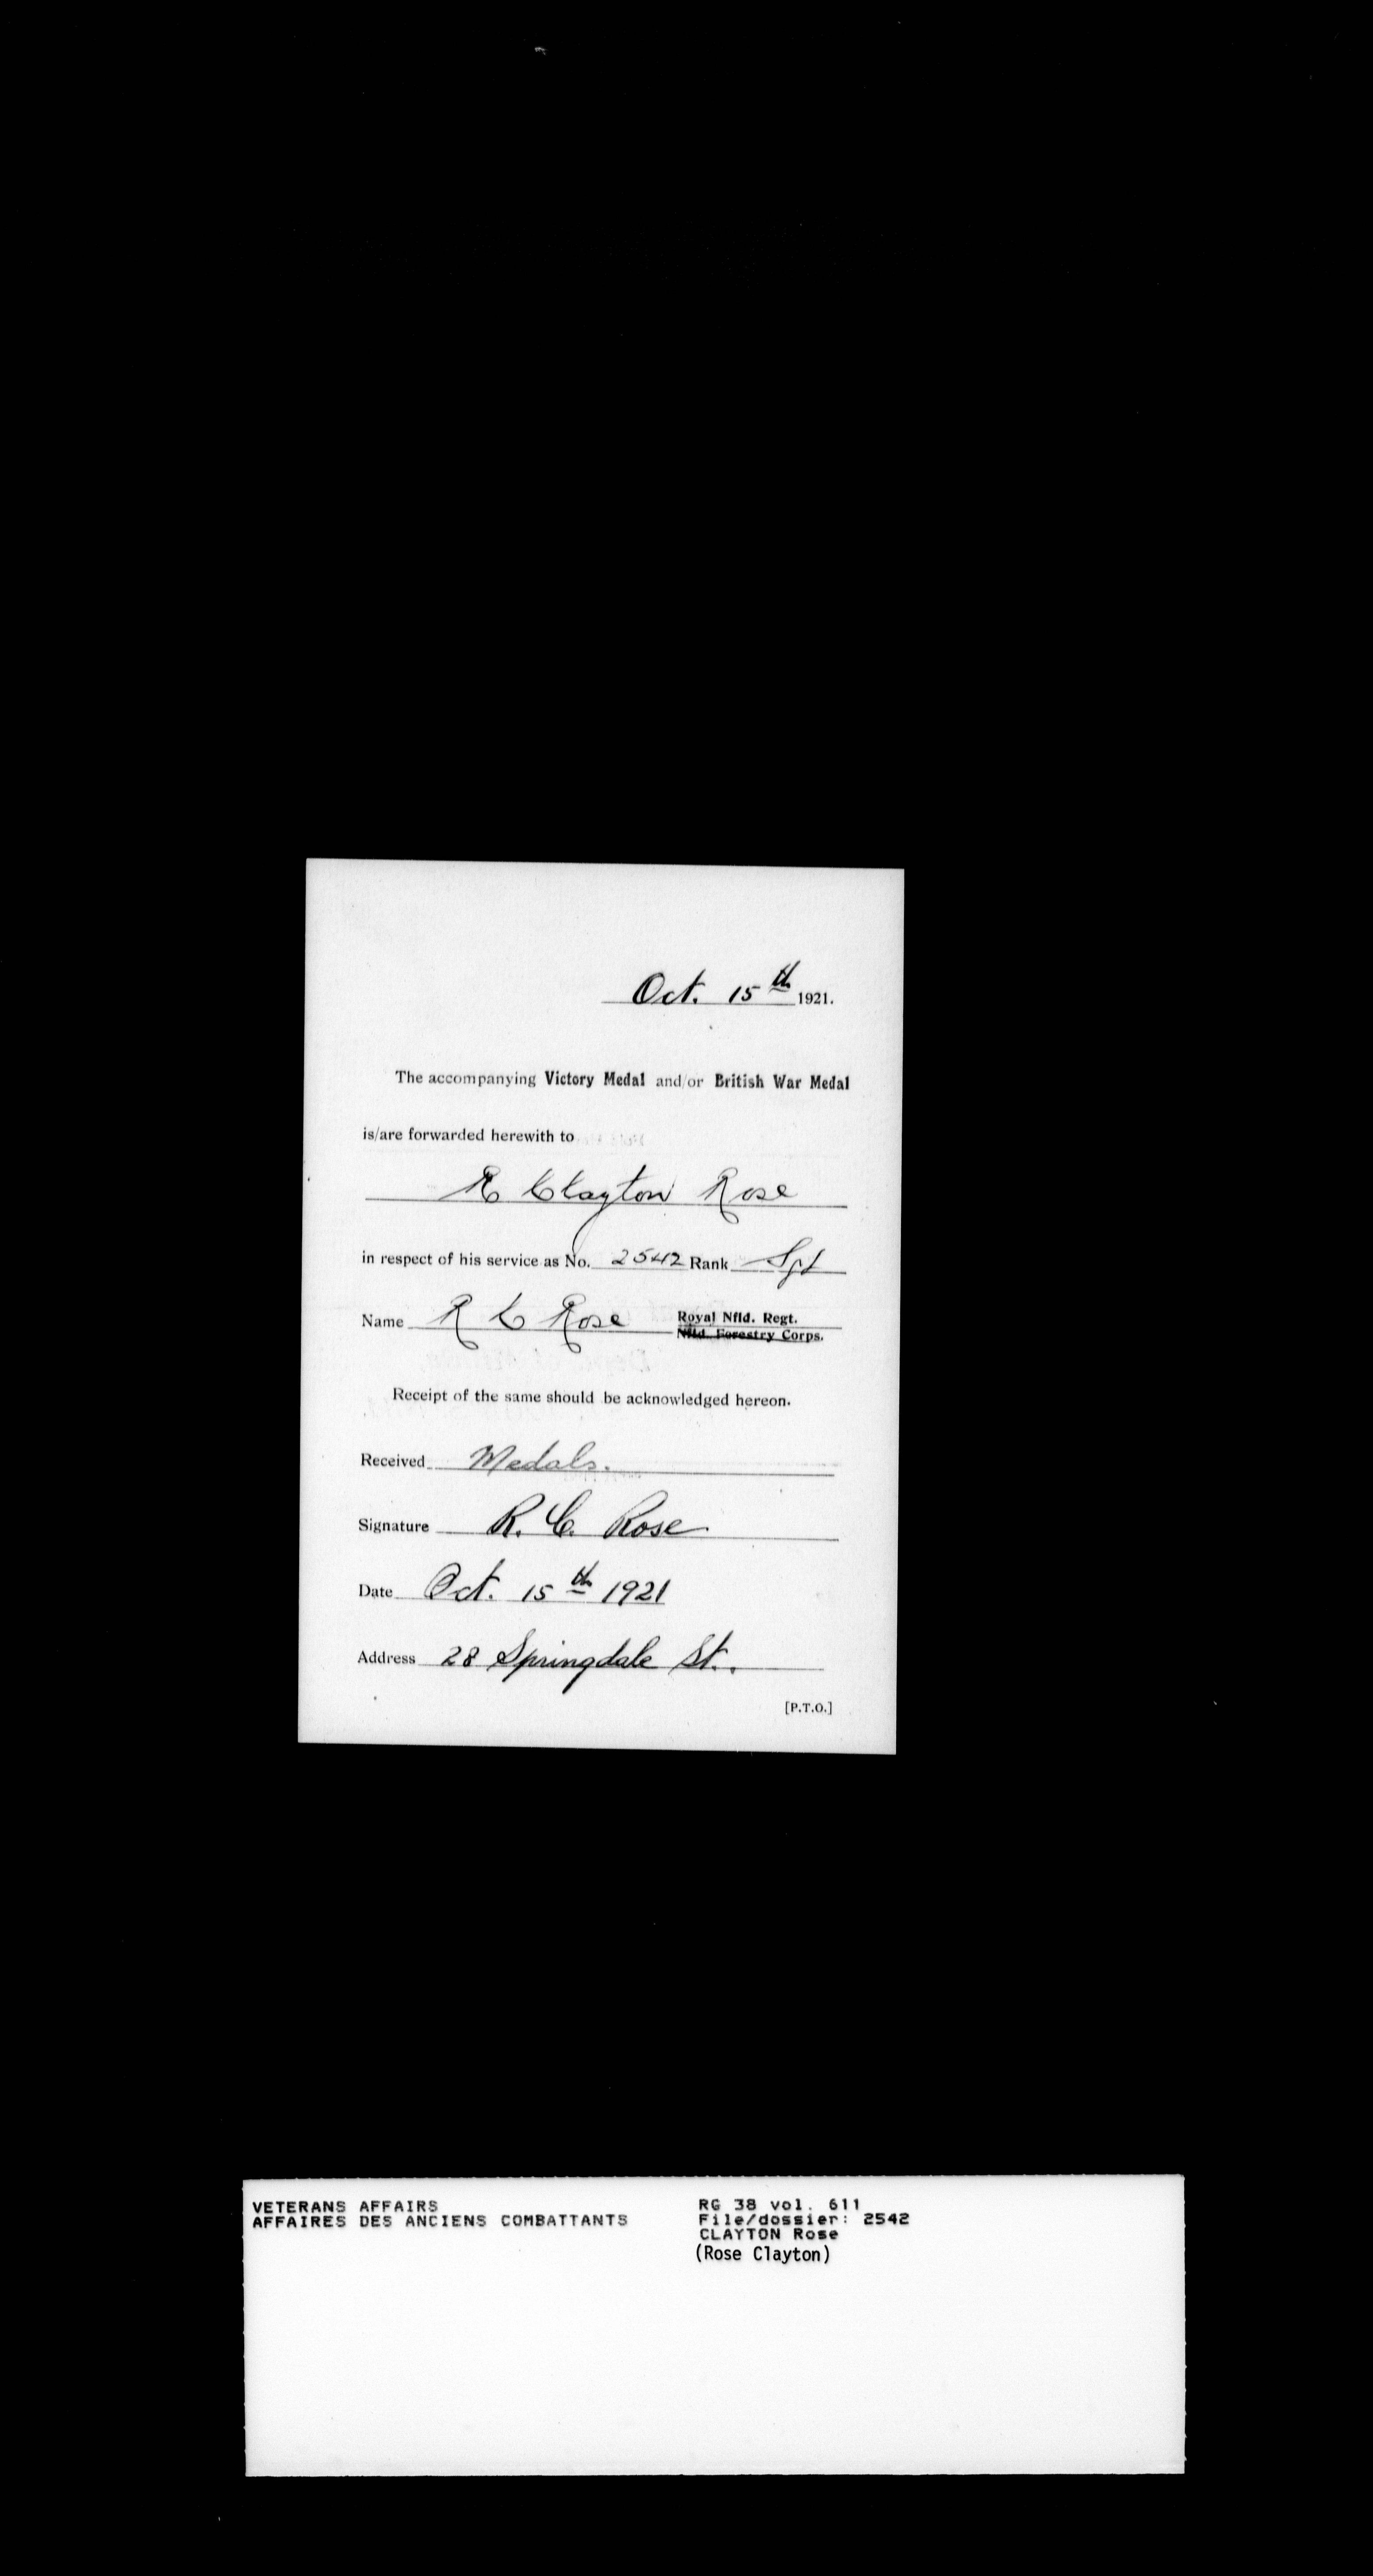 Oct. 15th 1921.
The accompanying Victory Medal and/or British War Medal
is/are forwarded herewith to
R Clayton Rose
in respect of his service as No. 2542 Rank Sgt
Name R C Rose Royal Nfld. Regt.
Nfld. Forestry Corps.
Receipt of the same should be acknowledged hereon.
Received Medals.
Signature R. C. Rose
Date Oct. 15th 1921
Address 28 Springdale St.
[P.T.O.]
VETERANS AFFAIRS
AFFAIRES DES ANCIENS COMBATTANTS
RG 38 vol. 611
File/dossier: 2542
CLAYTON Rose
(Rose Clayton)